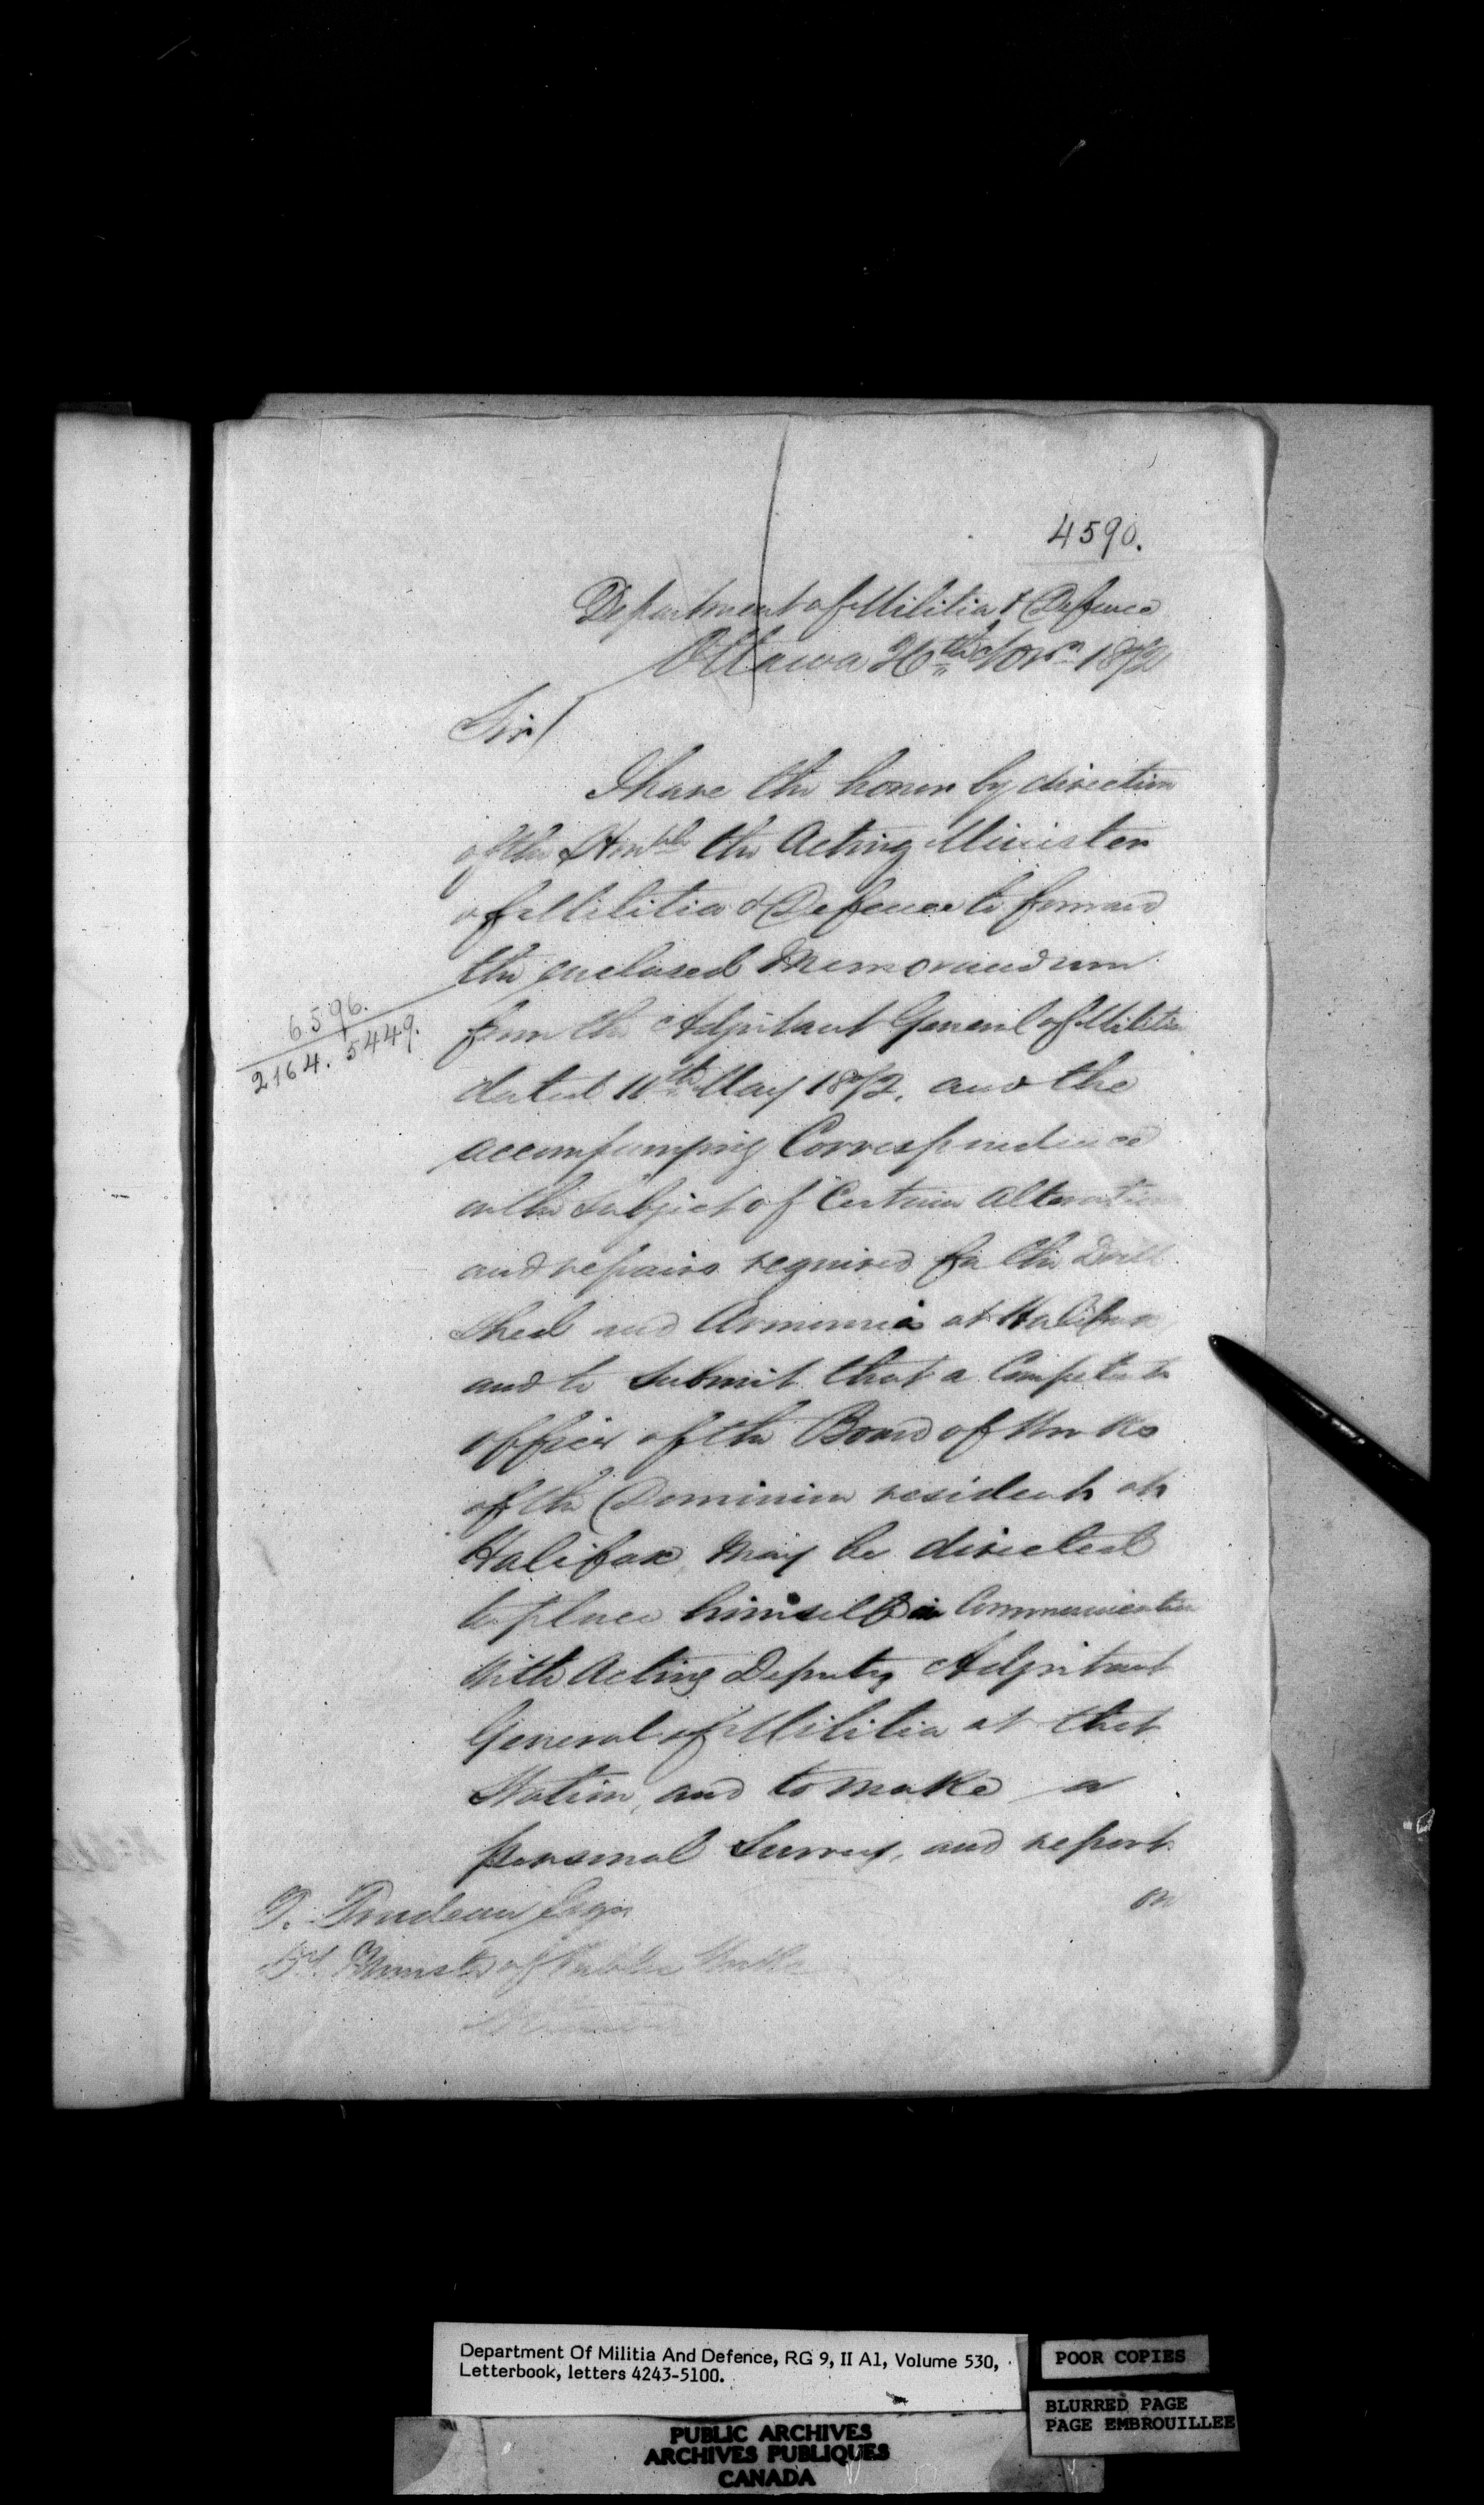 4590.
Department of Militia & Defence
Ottawa 26th Novr 1872
Sir/
I have the honor by direction
of the Honble the Acting Minister
of Militia & Defence to forward
the enclosed Memorandum
6596.
2164. 5449.
from the Adjutant General of Militia
dated 11th May 1872, and the
accompanying Correspondence
on the Subject of Certain alterations
and repairs required for the Drill
Shed and Armouries at Halifax
and to Submit that a Competent
officer of the Board of Works
of the Dominion resident at
Halifax, may be directed
to place himself in Communication
With Acting Deputy Adjutant
General of Militia at that
Station, and to make a
personal Survey, and report
on
T. Trudeau Esqr
Dy. Minister of Public Works
Department Of Militia And Defence, RG 9, II A1, Volume 530,
Letterbook, letters 4243-5100.
POOR COPIES
BLURRED PAGE
PAGE EMBROUILLEE
PUBLIC ARCHIVES
ARCHIVES PUBLIQUES
CANADA